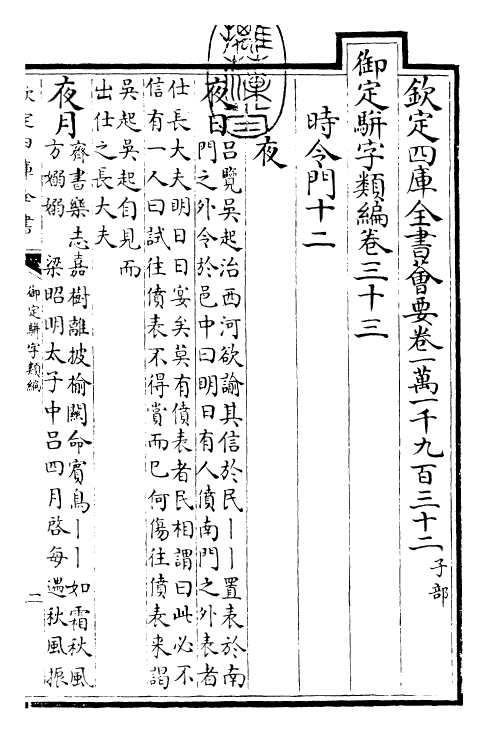 欽定四庫全書薈要卷一萬一千九百三十二 子部
御定駢字類編卷三十三
時令門十二
夜
夜日 吕覽吳起治西河欲諭其信於民丨丨置表於南
門之外令於邑中曰明日有人僨南門之外表者
仕長大夫明日日宴矣莫有僨表者民相謂曰此必不
信有一人曰試往僨表不得賞而已何傷往僨表來謁
吳起吳起自見而
出仕之長大夫
夜月 齊書樂志嘉樹離披榆關命賓鳥丨丨如霜秋風
方嫋嫋 梁昭明太子中吕四月啓每遇秋風振
欽定四庫全書
御定駢字類編